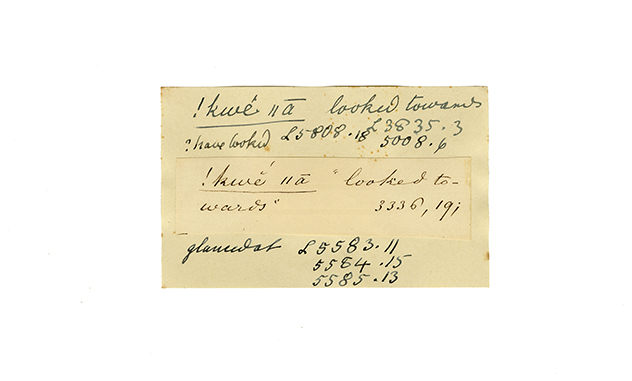 !kwé ıı ā looked towards
? have looked £5808.18 £3835.3
5008.6
!kwé ıı ā "looked to-
wards" 3336, 19;
glanced at £5583.11
5584.15
5585.13